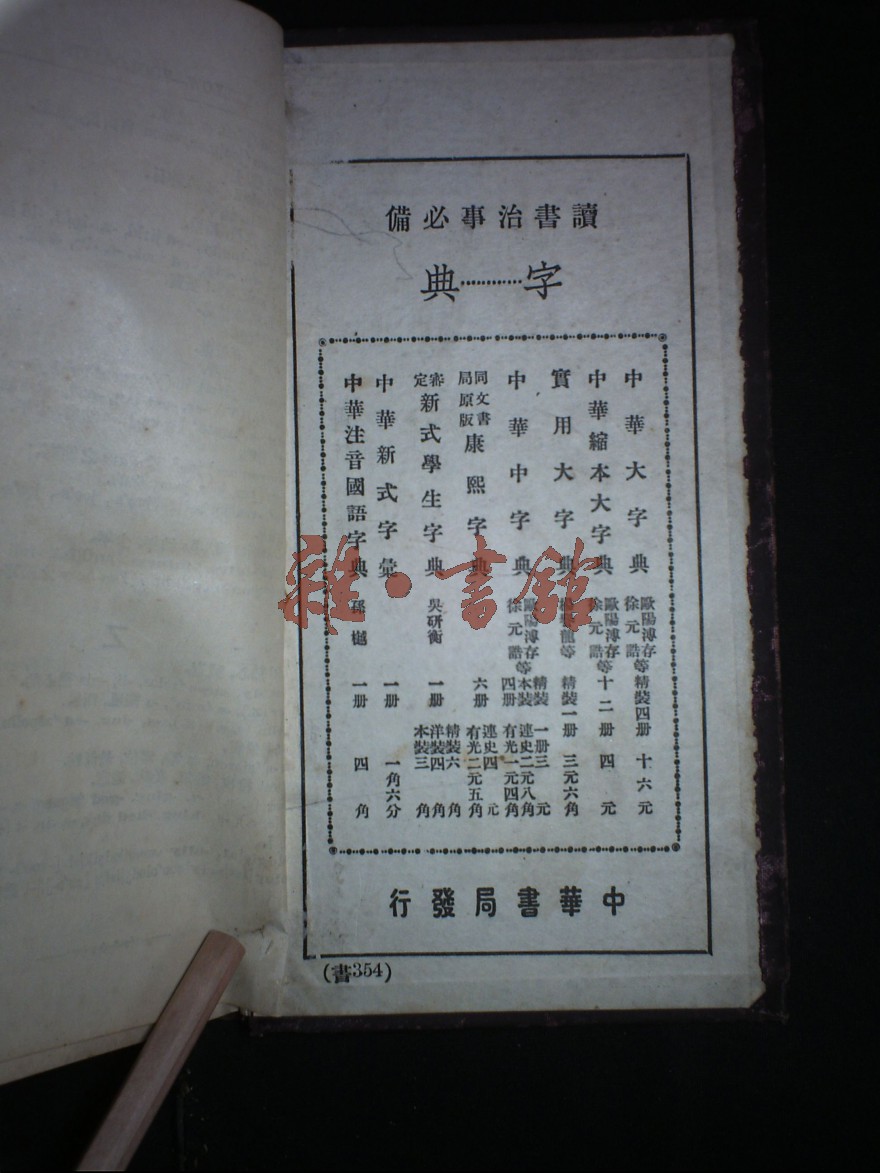 讀書治事必備
字…………典
中華大字典 歐陽溥存 徐元誥等 精裝四册 十六元
中華縮本大字典 歐陽溥存 徐元誥等 十二册 四元
實用大字典 等 精裝一册 三元六角
中華中字典 歐陽溥存 徐元誥等 精裝一册三元 本裝四册 連史二元八角 有光一元四角
同文書局原版康熙字典 六册 連史四元 有光二元五角
審定新式學生字典 吳研蘅 一册 精裝六角 洋裝四角 本裝三角
中華新式字彙 一册 一角六分
中華注音國語字典 孫樾 一册 四角
中華書局發行
(書354)
雜·書館